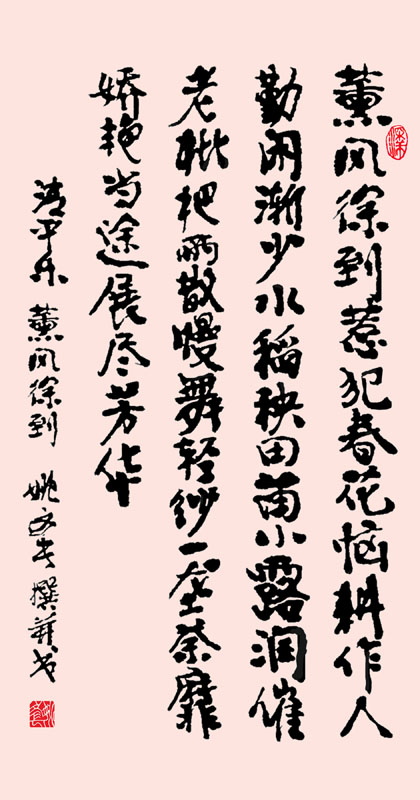 薰风徐到惹犯春花恼耕作人
勤闲渐少水稻秧田苗小露润催
老枇杷雨散慢舞轻纱一垄荼靡
娇艳当途展尽芳华
清平乐 薰风徐到 姚 撰并书